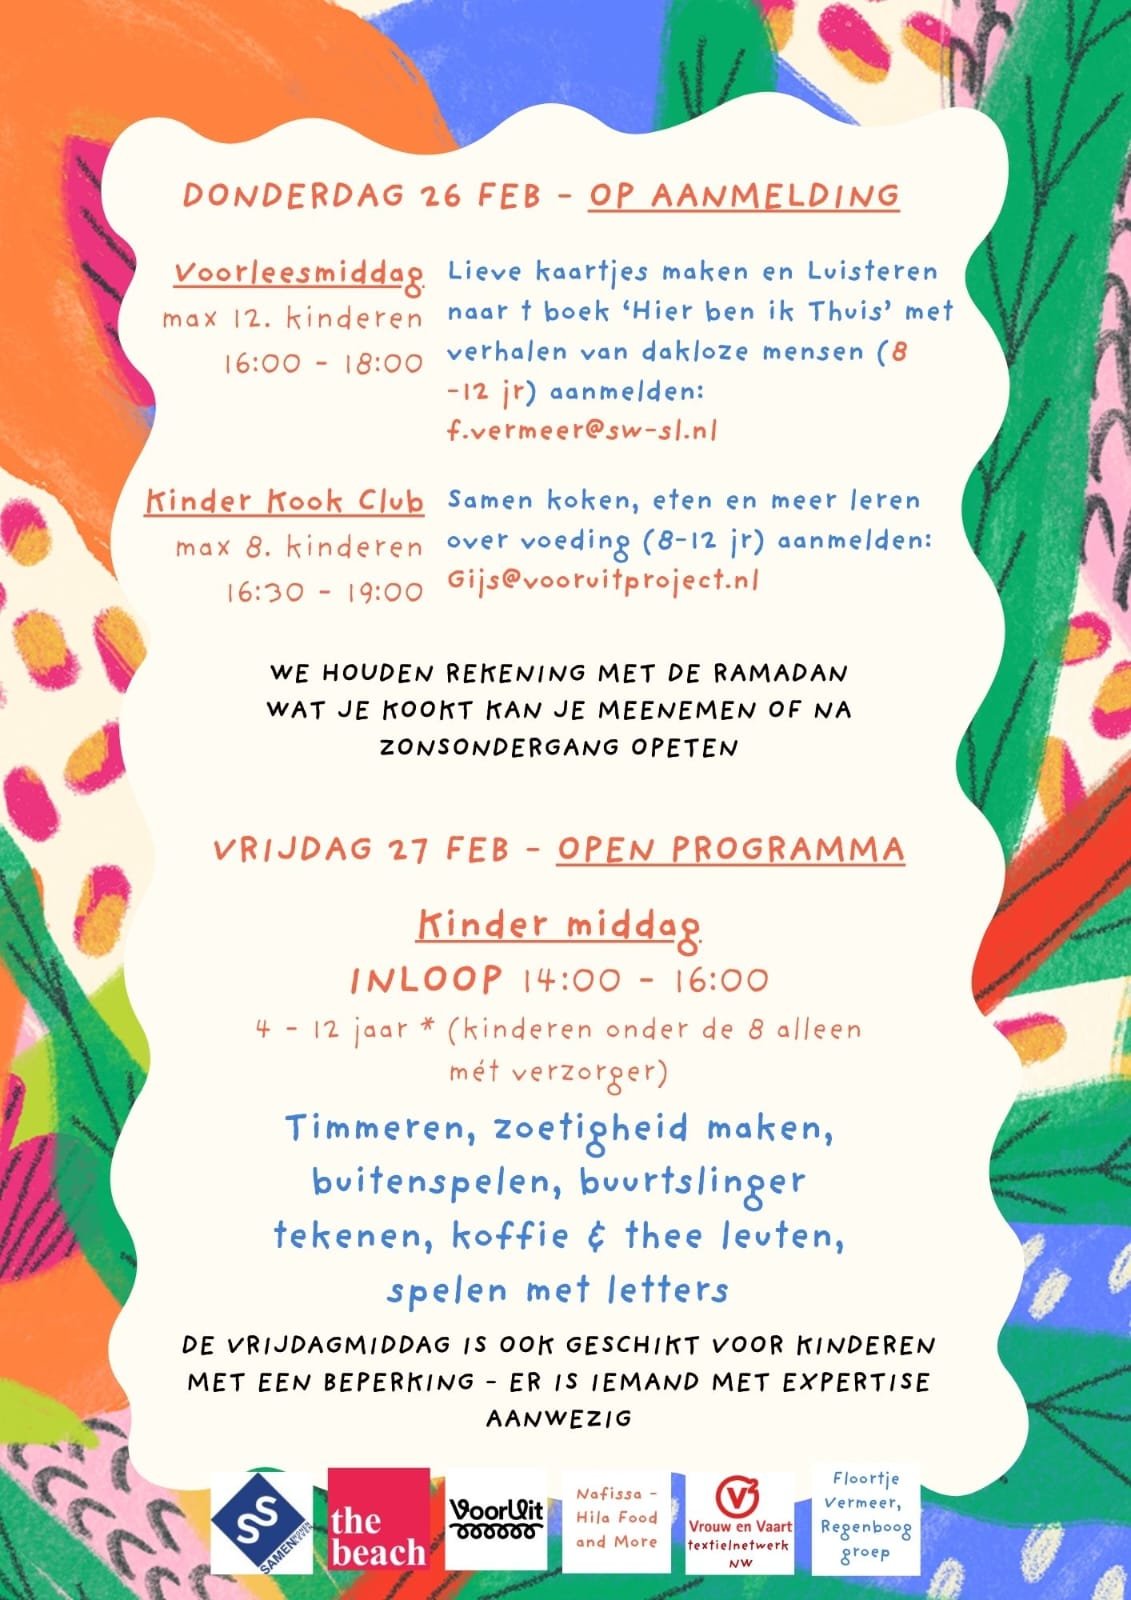 DONDERDAG 26 FEB - OP AANMELDING
Voorleesmiddag
max 12. kinderen
16:00 - 18:00
Lieve kaartjes maken en Luisteren
naar t boek ‘Hier ben ik Thuis’ met
verhalen van dakloze mensen (8
-12 jr) aanmelden:
f.vermeer@sw-sl.nl
Kinder Kook Club
max 8. kinderen
16:30 - 19:00
Samen koken, eten en meer leren
over voeding (8-12 jr) aanmelden:
Gijs@vooruitproject.nl
WE HOUDEN REKENING MET DE RAMADAN
WAT JE KOOKT KAN JE MEENEMEN OF NA
ZONSONDERGANG OPETEN
VRIJDAG 27 FEB - OPEN PROGRAMMA
Kinder middag
INLOOP 14:00 - 16:00
4 - 12 jaar * (kinderen onder de 8 alleen
mét verzorger)
Timmeren, zoetigheid maken,
buitenspelen, buurtslinger
tekenen, koffie & thee leuten,
spelen met letters
DE VRIJDAGMIDDAG IS OOK GESCHIKT VOOR KINDEREN
MET EEN BEPERKING - ER IS IEMAND MET EXPERTISE
AANWEZIG
SAMEN
the
beach
VoorUit
Nafissa -
Hila Food
and More
Vrouw en Vaart
textielnetwerk
NW
Floortje
Vermeer,
Regenboog
groep